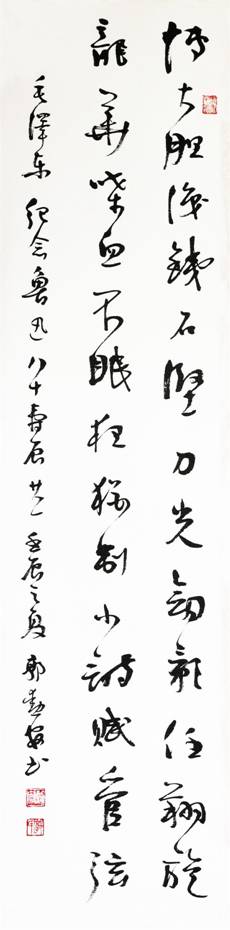 博大胆识铁石坚刀光剑影任翔旋
龙华喋血不眠夜犹制小诗赋管弦
毛泽东纪念鲁迅八十寿辰其一壬辰之夏郭书